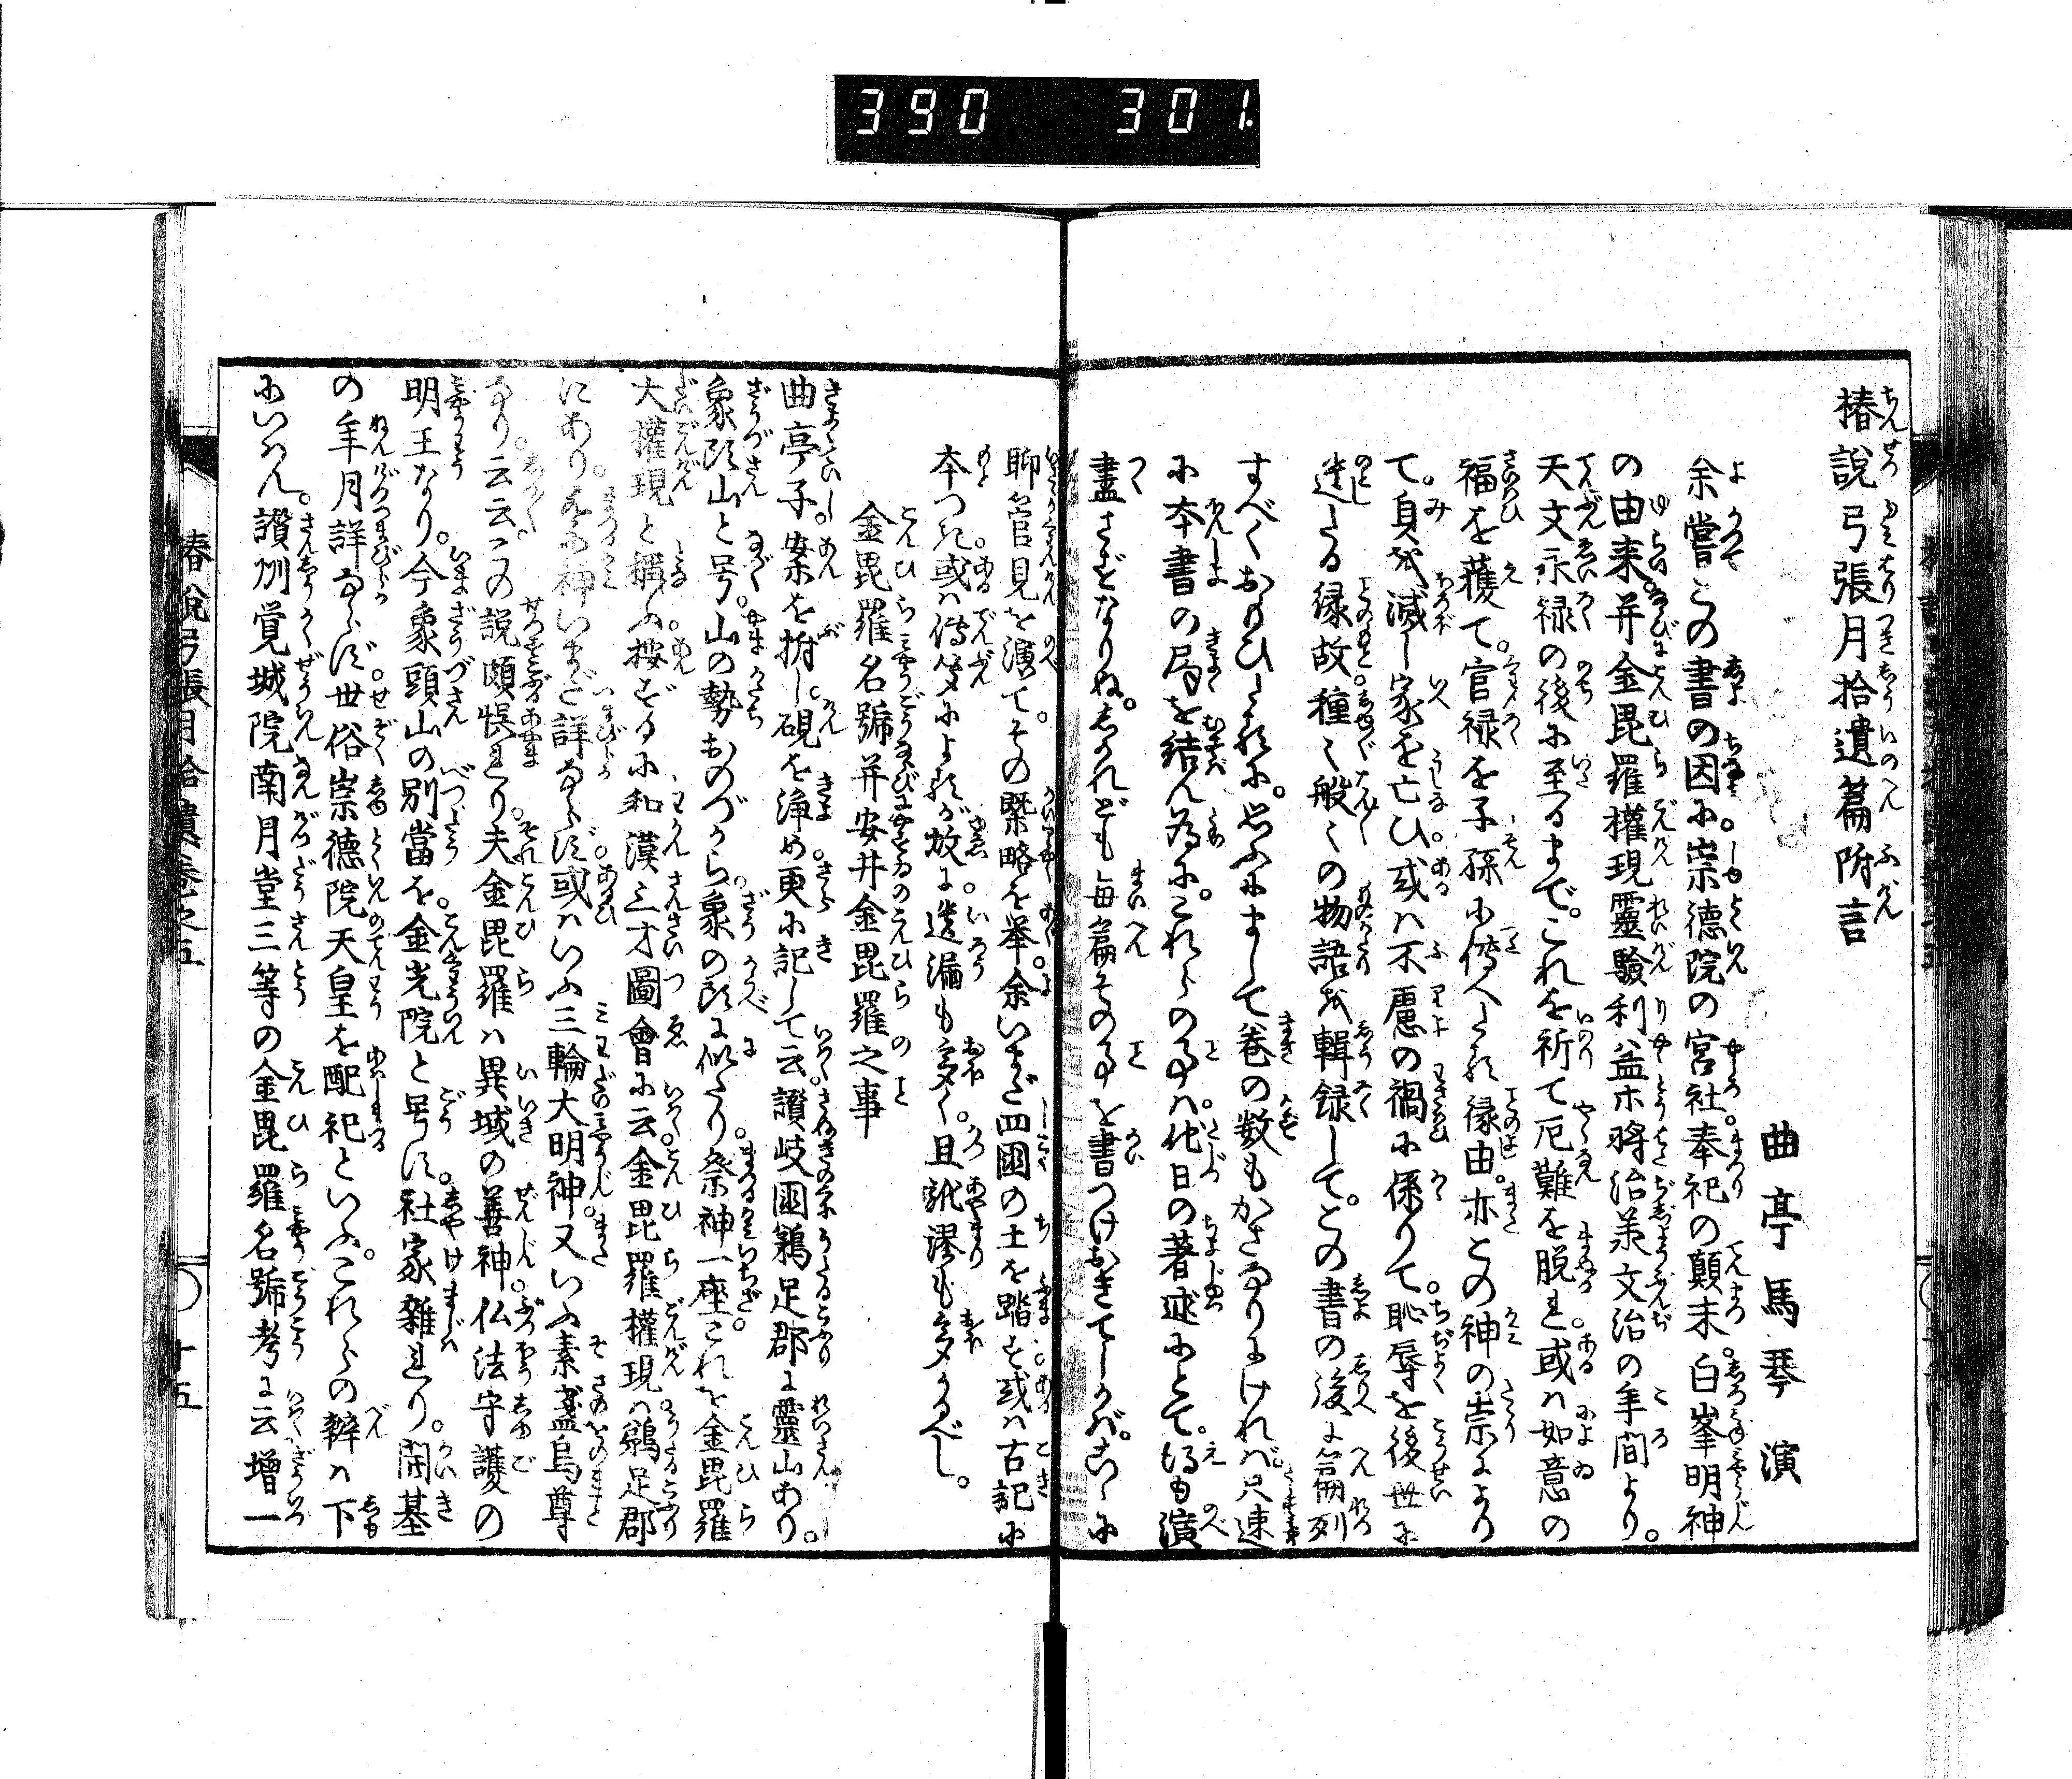 390 301.
椿說弓張月拾遺篇附言
曲亭馬琴演
余嘗この書の因に。崇徳院の宮社。奉祀の顛末。白峯明神
の由来。并金毘羅權現靈驗利益ホ將治羕文治の年間より。
天文永禄の後に至るまで。これを祈て厄難を脱れ或ハ如意の
福を獲て。官禄を子孫に傳へたる縁由。亦この神の祟により
て。身を滅し家を亡ひ。或ハ不慮の禍に係りて。恥辱を後世に
逃したる縁故。種々般々の物語を輯録して。この書の後に篇列
すべくおもひしかど。思ふにまして巻の数もかさなりにければ。尺速
に本書の局を結ん為に。これらの事ハ他日の著述にとて。得も演
盡さずなりね。しかれども毎篇その事を書つけおきてしかば。こゝに
聊管見を演て。その槩略を举。余いまだ四國の土を踏ず或ハ古記に
本つき或ハ傳聞によるが故に。遺漏も多く。且訛謬も多かるべし。
金毘羅名號并安井金毘羅之事
曲亭子。案を拊し。硯を浄め更に記して云讃岐國鵜足郡に靈山あり。
象頭山と号。山の勢おのづから。象の頭に似たり。祭神一座これを金毘羅
大權現と稱ふ。按ずるに和漢三才圖會に云金毘羅權現ハ鵜足郡
にあり。祭る神いまだ詳ならず。或ハいふ三輪大明神。又いふ素盞烏尊
なり。云云。この說頗悞れり。夫金毘羅ハ異域の善神。仏法守護の
明王なり。今象頭山の別當を。金光院と号す。社家雑れり。開基
の年月詳ならず。世俗崇徳院天皇を配祀といふ。これらの辯ハ下
にいはん。讃州覚城院南月堂三等の金毘羅名號考に云増一
椿說弓張月拾遺巻之五
十五